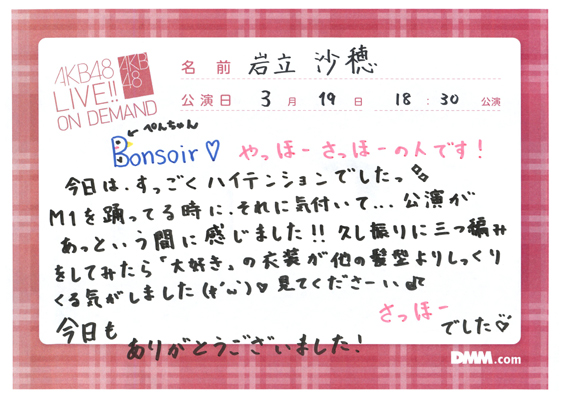 AKB48
LIVE!!
ON DEMAND
AKB
48
名前 岩立 沙穂
公演日 3月 19日 18:30 公演
ぺんちゃん
Bonsoir♡ やっほー さっほーの人です!
今日は、すっごくハイテンションでしたっ
M1を踊ってる時に、それに気付いて...公演が
あっという間に感じました!! 久し振りに三つ編み
をしてみたら「大好き」の衣装が他の髪型よりしっくり
くる気がしました(*'ω')♡ 見てくださーい♪
さっほー
でした♡
今日も
ありがとうございました!
DMM.com